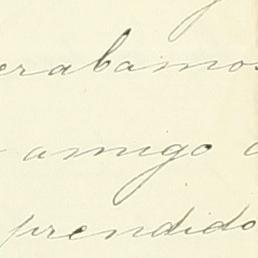 erabamos
amigo
prendido